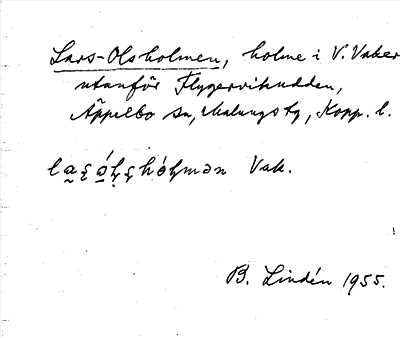 Lars-Olsholmen, holme i V. Vaker
utanför Flygervikudden,
Äppelbo sn, Malungs tg, Kopp. l.
Vak.
B. Lindén 1955.